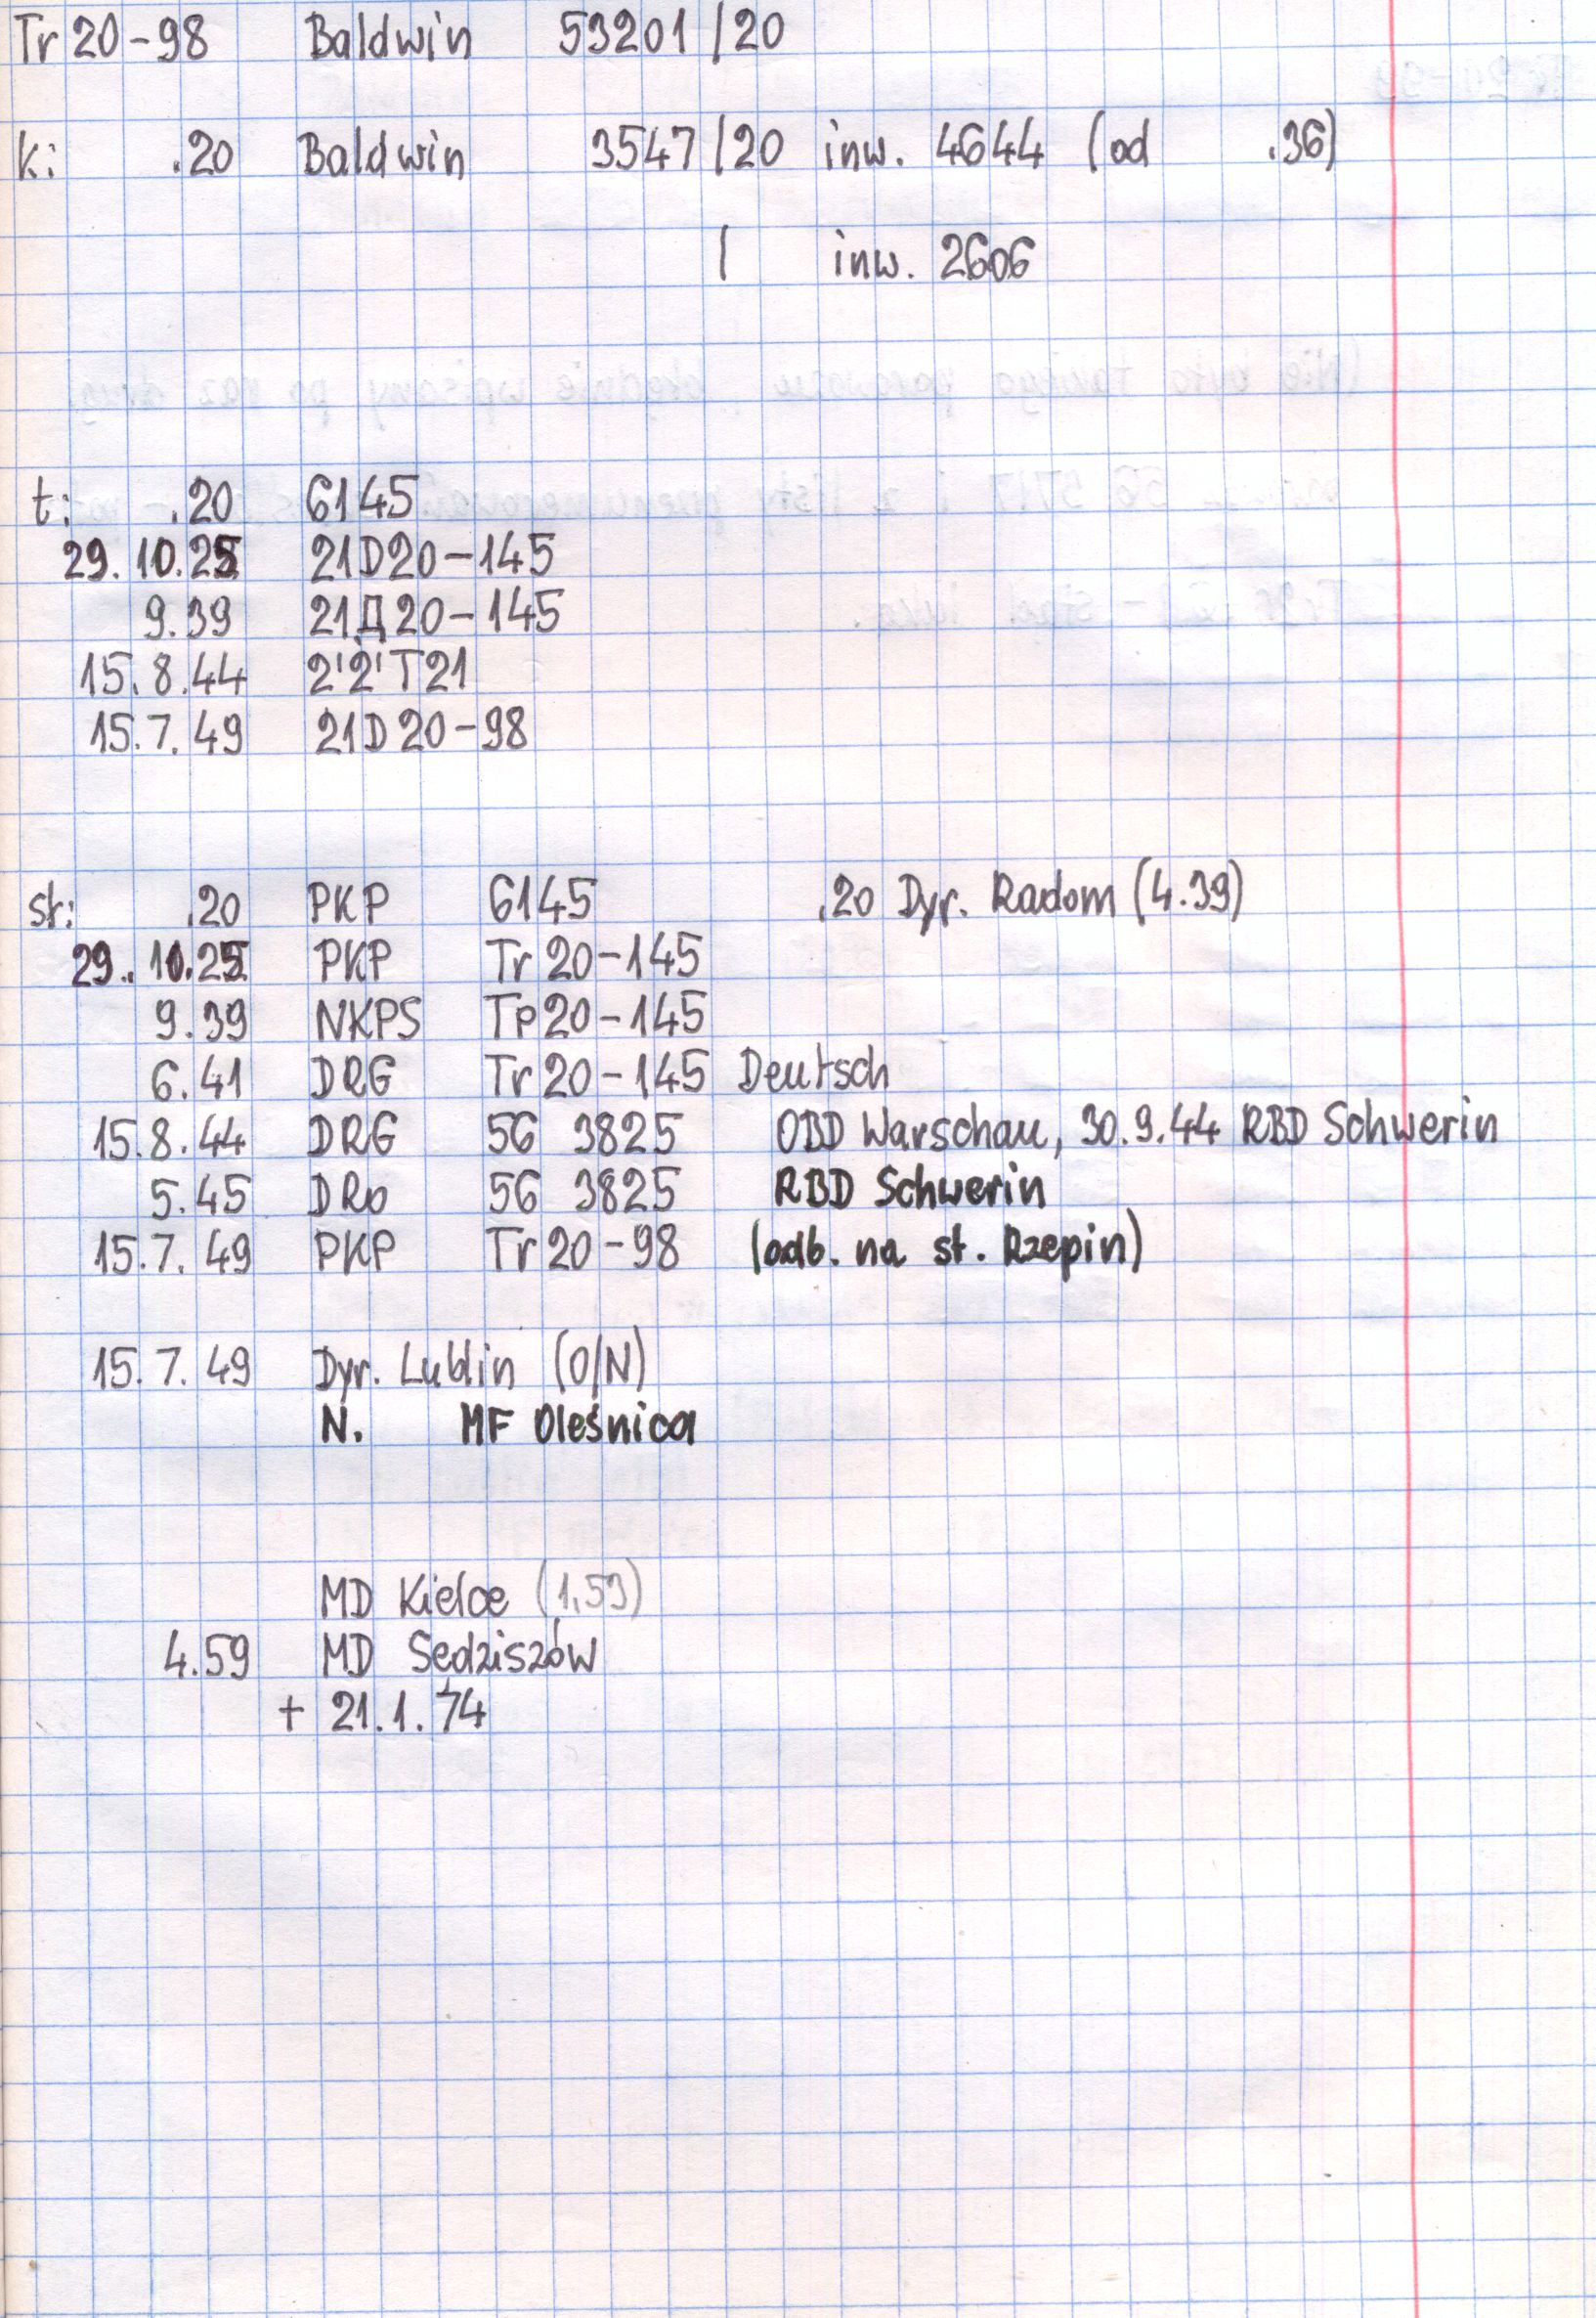 Tr 20-98 Baldwin 53201/20
k: .20 Baldwin 3547/20 inw. 4644 (od .36)
/ inw. 2606
t: .20 6145
29.10.25 21D20-145
9.39 21Д20-145
15.8.44 2'2'T21
15.7.49 21D20-98
st: .20 PKP 6145 .20 Dyr. Radom (4.39)
29.10.25 PKP Tr 20-145
9.39 NKPS Tp20-145
6.41 DRG Tr 20-145 Deutsch
15.8.44 DRG 56 3825 OBD Warschau, 30.9.44 RBD Schwerin
5.45 DRo 56 3825 RBD Schwerin
15.7.49 PKP Tr 20-98 (odb. na st. Rzepin)
15.7.49 Dyr. Lublin (O/N)
N. MF Oleśnica
MD Kielce (1.53)
4.59 MD Sedziszów
+ 21.1.74